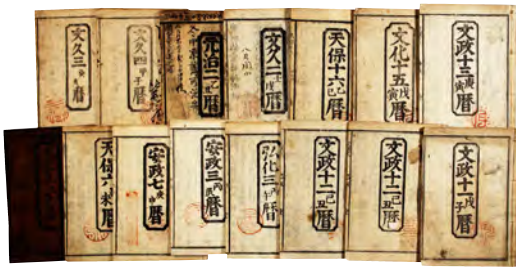 文政十三庚寅暦
文化十五戊寅暦
天保十六乙巳暦
文久二壬戌暦
元治二乙丑暦
文久四甲子暦
文久三癸亥暦
文政十一戊子暦
文政十二己丑暦
文政十二己丑暦
弘化三丙午暦
安政三丙辰暦
安政七庚申暦
天保六未暦